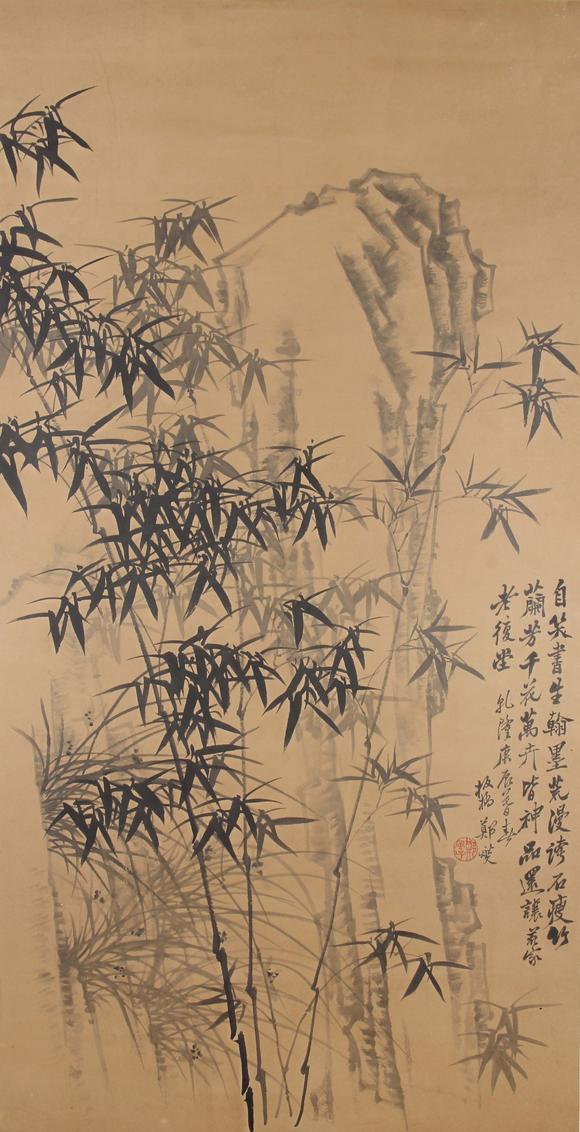 自笑書生翰墨荒漫誇石瘦竹
蘭芳千花萬卉皆神品還讓若家
老復堂 乾隆庚辰 春
板橋鄭燮